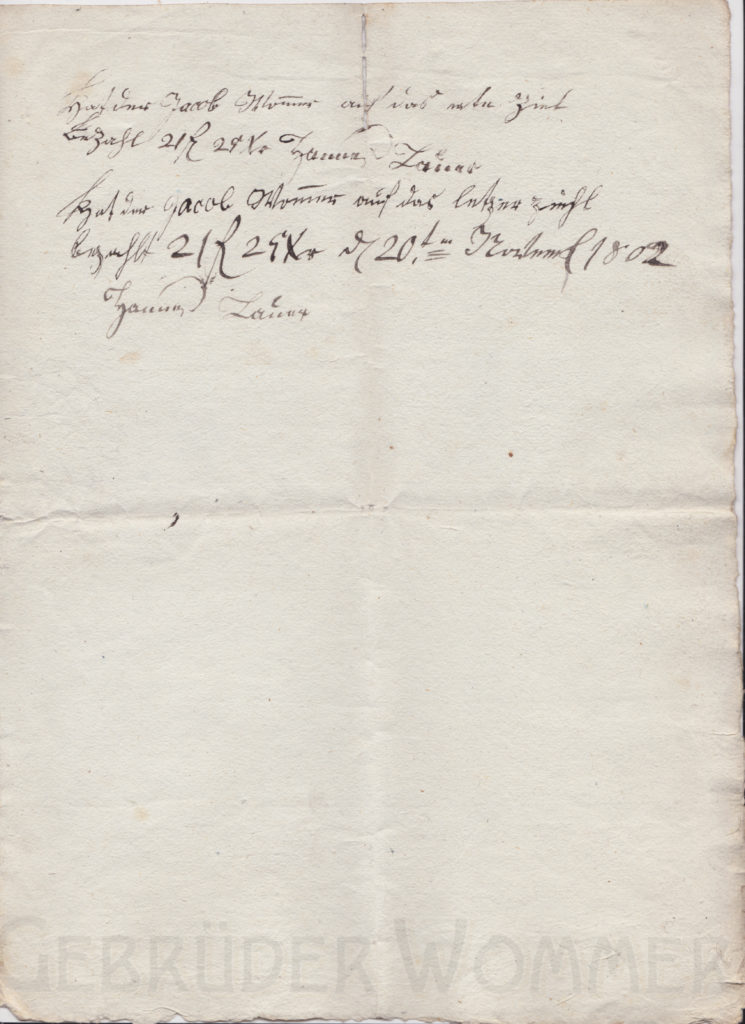 Hat der Jacob Wommer auf das erste Ziel
bezahl 21 f 25 Xr Hannes Lauer
Hat der Jacob Wommer auf das letzer ziehl
bezahlt 21 f 25 Xr d 20.ten Novemb 1802
Hannes Lauer
GEBRÜDER WOMMER